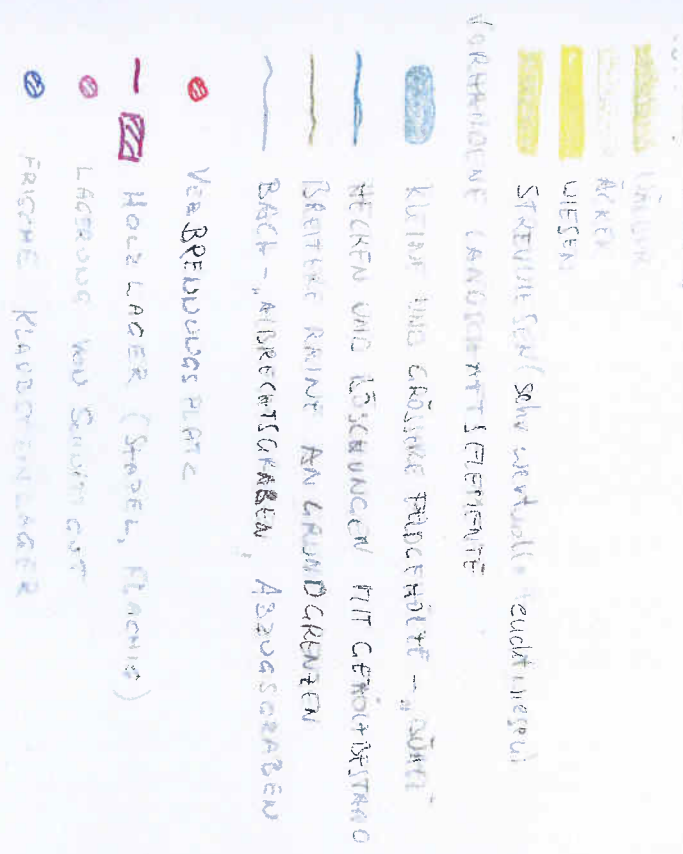 WÄLDER
ÄCKER
WIESEN
STREUWIESEN (sehr wertvolle Feuchtwiesen)
VORHANDENE LANDSCHAFTSELEMENTE
KLEINE UND GRÖSSERE FELDGEHÖLZE -
HECKEN UND BÖSCHUNGEN MIT GEHÖLZBESTAND
BREITERE RAINE AN GRUNDGRENZEN
BACH - "ALBRECHTSGRABEN", ABZUGSGRABEN
VERBRENNUNGSPLATZ
HOLZLAGER (STAPEL, FLÄCHIG)
LAGERUNG VON SCHNITTGUT
FRISCHE KLAUBSTEINLAGER